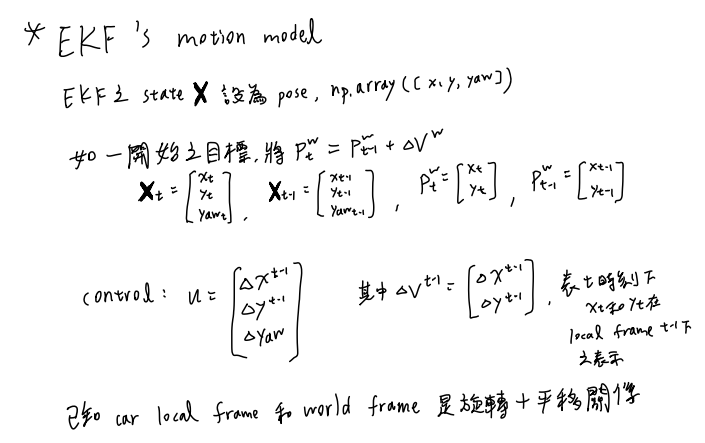 * EKF 's motion model
EKF之 state X 設為 pose, np.array([x, y, yaw])
如一開始之目標, 將 P_t^w = P_{t-1}^w + ΔV^w
X_t = [x_t y_t yaw_t], X_{t-1} = [x_{t-1} y_{t-1} yaw_{t-1}], P_t^w = [x_t y_t], P_{t-1}^w = [x_{t-1} y_{t-1}]
control: u = [Δx^{t-1} Δy^{t-1} Δyaw] 其中 ΔV^{t-1} = [Δx^{t-1} Δy^{t-1}], 表 t 時刻下
x_t 和 y_t 在
local frame t-1 下
之表示
已知 car local frame 和 world frame 是旋轉+平移關係